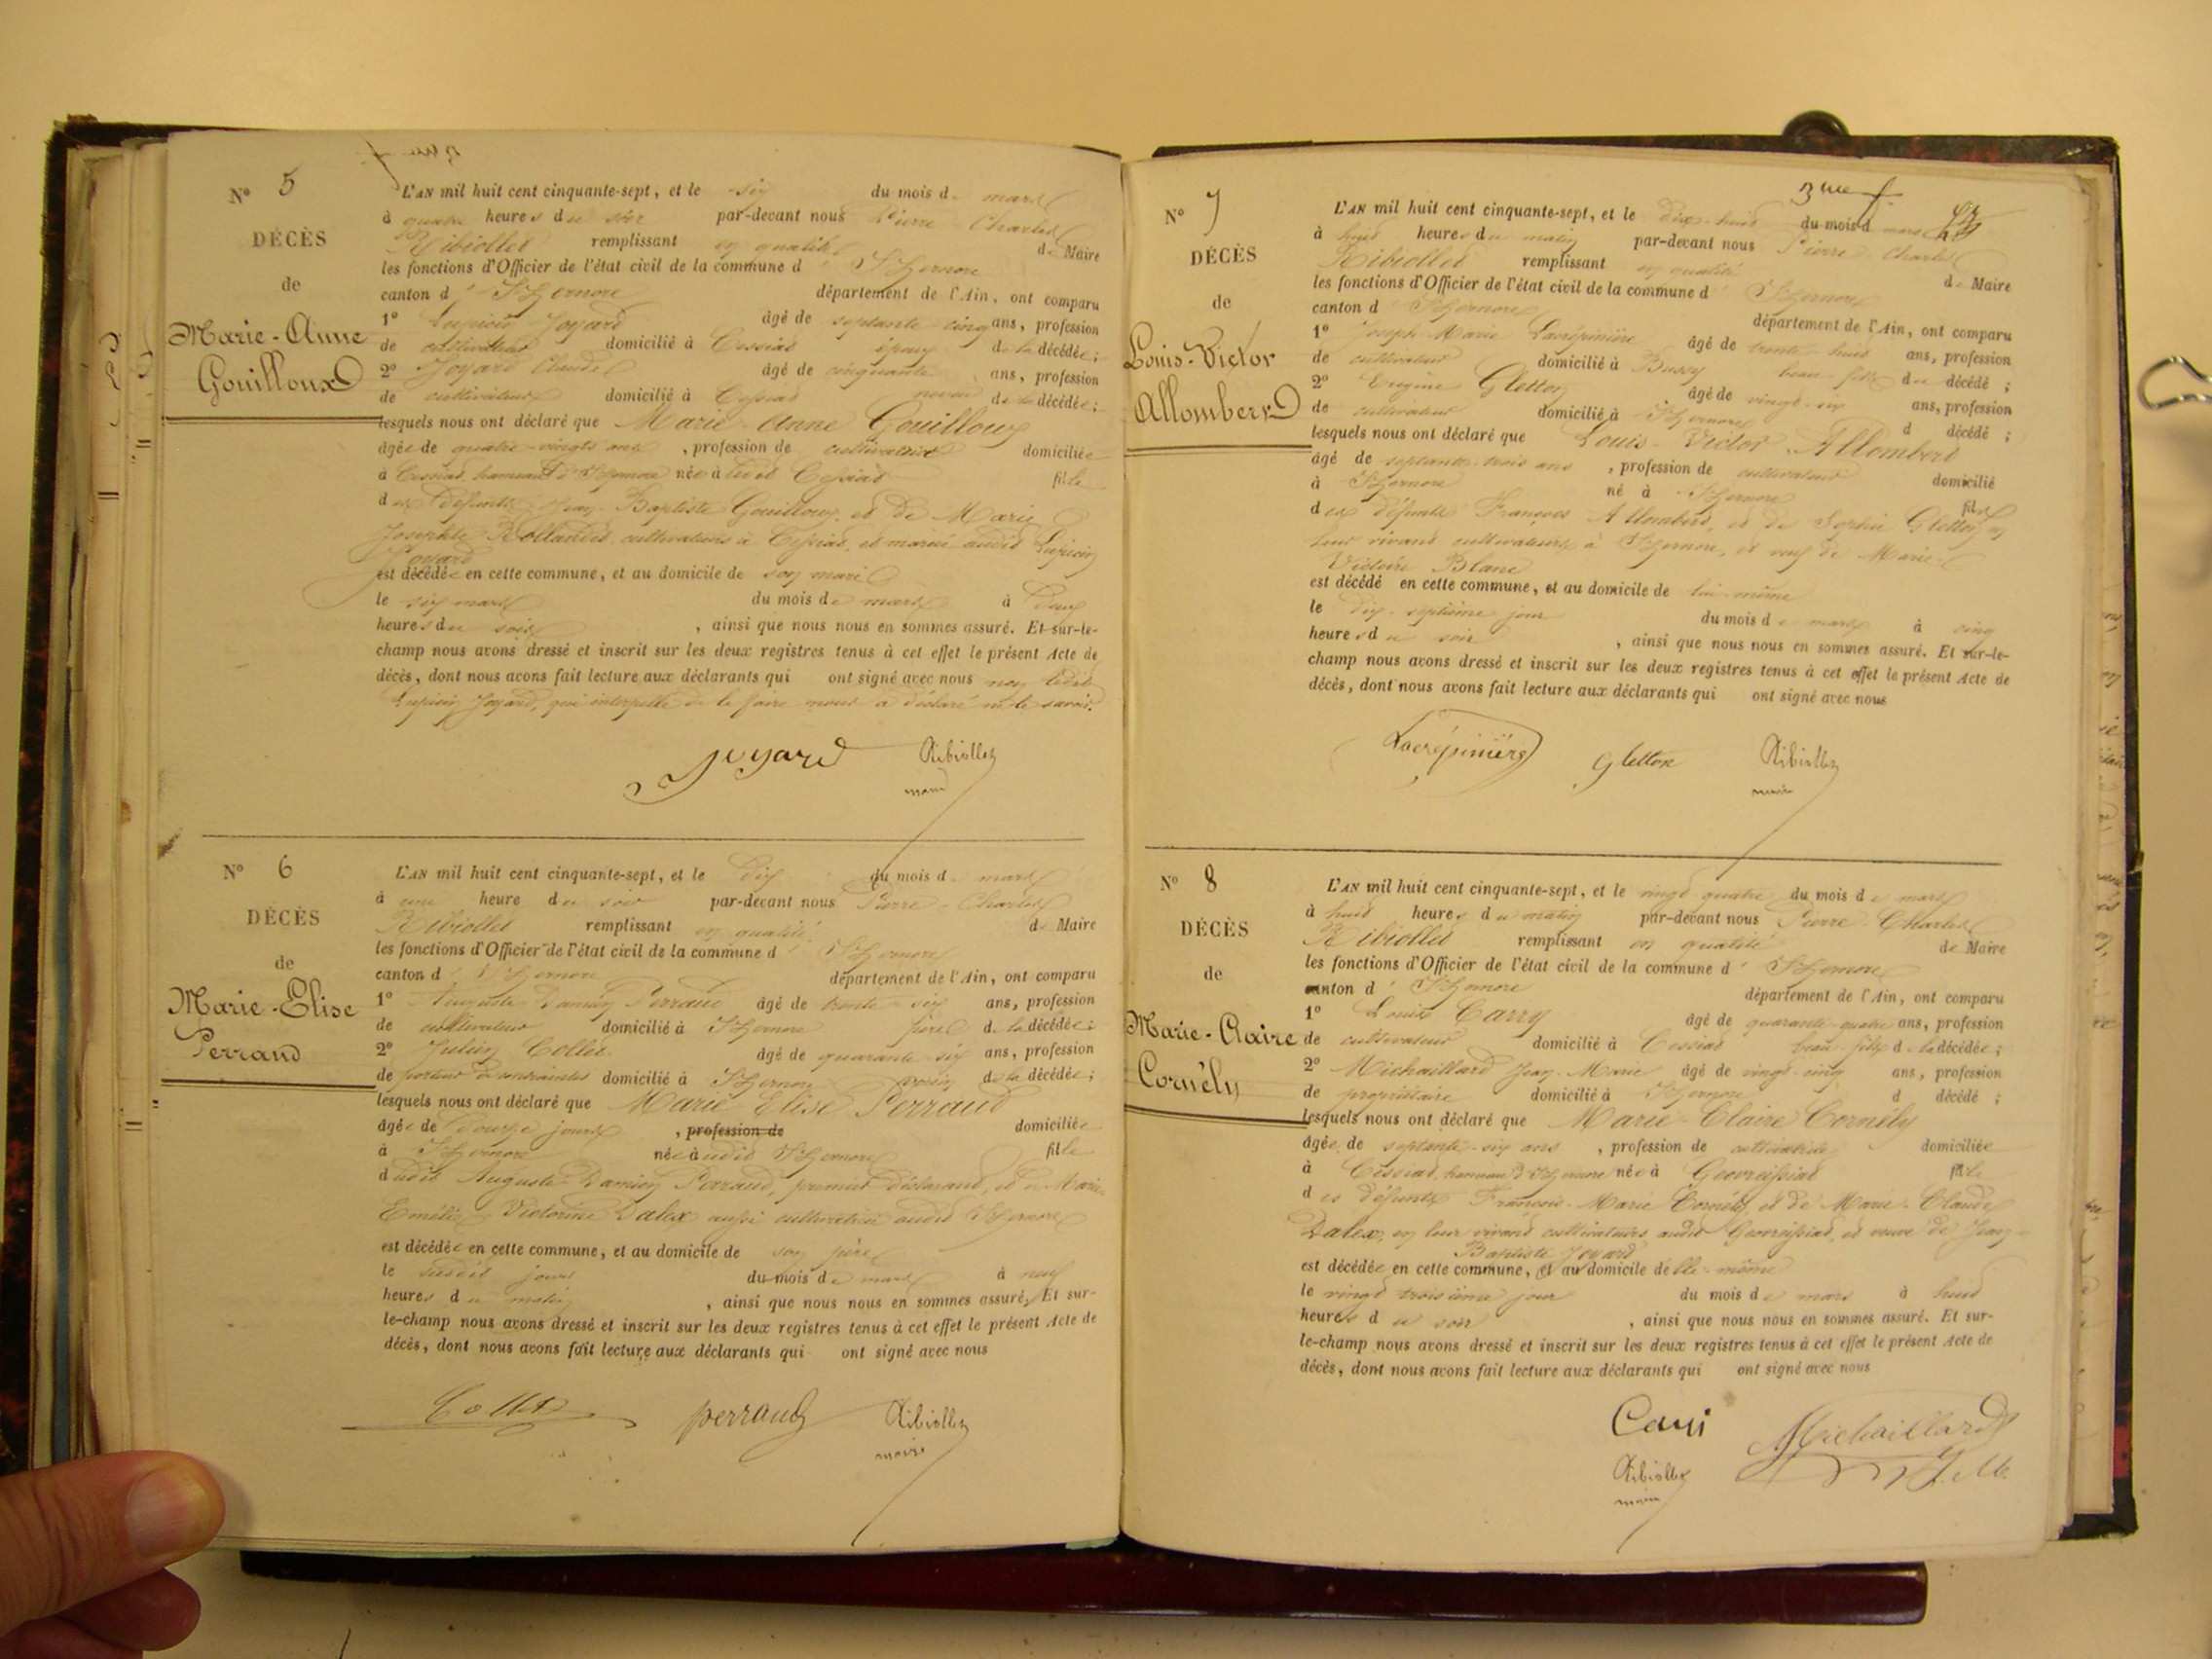 N° 5
DÉCÈS
de
Marie-Anne
Gouilloux
L'AN mil huit cent cinquante-sept, et le six du mois de mars
à quatre heures du soir par-devant nous Pierre Charles
Ribiollet remplissant en qualité de Maire
les fonctions d'Officier de l'état civil de la commune d' Izernore
canton d' Izernore département de l'Ain, ont comparu
1° Lupicin Joyard âgé de septante cinq ans, profession
de cultivateur domicilié à Cessiat époux de la décédée;
2° Joyard Claude âgé de cinquante ans, profession
de cultivateur domicilié à Cessiat neveu de la décédée;
lesquels nous ont déclaré que Marie Anne Gouilloux
âgée de quatre-vingts ans, profession de cultivatrice domiciliée
à Cessiat hameau d'Izernore née à dit Cessiat fille
des défunts Jean-Baptiste Gouilloux et de Marie
Josephte Rollandet cultivateurs à Cessiat, et mariée audit Lupicin
Joyard
est décédée en cette commune, et au domicile de son mari
le six mars du mois de mars à deux
heures du soir, ainsi que nous nous en sommes assuré. Et sur-le-
champ nous avons dressé et inscrit sur les deux registres tenus à cet effet le présent Acte de
décès, dont nous avons fait lecture aux déclarants qui ont signé avec nous non ledit
Lupicin Joyard, qui interpellé de le faire nous a déclaré ne le savoir.
Joyard Ribiollet
maire
N° 6
DÉCÈS
de
Marie-Elise
Perraud
L'AN mil huit cent cinquante-sept, et le dix du mois de mars
à une heure du soir par-devant nous Pierre-Charles
Ribiollet remplissant en qualité de Maire
les fonctions d'Officier de l'état civil de la commune d' Izernore
canton d' Izernore département de l'Ain, ont comparu
1° Auguste Damien Perraud âgé de trente-six ans, profession
de cultivateur domicilié à Izernore père de la décédée;
2° Julien Collet âgé de quarante-six ans, profession
de porteur de contraintes domicilié à Izernore voisin de la décédée;
lesquels nous ont déclaré que Marie Elise Perraud
âgée de douze jours, profession de domiciliée
à Izernore née audit Izernore fille
dudit Auguste Damien Perraud, premier déclarant, et de Marie
Emélie Victorine Dalex aussi cultivatrice audit Izernore
est décédée en cette commune, et au domicile de son père
le susdit jour du mois de mars à neuf
heures du matin, ainsi que nous nous en sommes assuré. Et sur-
le-champ nous avons dressé et inscrit sur les deux registres tenus à cet effet le présent Acte de
décès, dont nous avons fait lecture aux déclarants qui ont signé avec nous
Collet perraud Ribiollet
maire
N° 7
DÉCÈS
de
Louis-Victor
Allombert
L'AN mil huit cent cinquante-sept, et le dix-huit du mois de mars
à huit heures du matin par-devant nous Pierre Charles
Ribiollet remplissant en qualité de Maire
les fonctions d'Officier de l'état civil de la commune d' Izernore
canton d' Izernore département de l'Ain, ont comparu
1° Joseph-Marie Lacrépinière âgé de trente-huit ans, profession
de cultivateur domicilié à Bussy beau-fils du décédé;
2° Eugène Gletton âgé de vingt-six ans, profession
de cultivateur domicilié à Izernore d décédé;
lesquels nous ont déclaré que Louis-Victor Allombert
âgé de septante-trois ans, profession de cultivateur domicilié
à Izernore né à Izernore fils
des défunts François Allombert et de Gletton en
leur vivant cultivateurs à Izernore, et veuf de Marie-
Victoire Blanc
est décédé en cette commune, et au domicile de lui-même
le dix-septième jour du mois de mars à cinq
heures du soir, ainsi que nous nous en sommes assuré. Et sur-le-
champ nous avons dressé et inscrit sur les deux registres tenus à cet effet le présent Acte de
décès, dont nous avons fait lecture aux déclarants qui ont signé avec nous
Lacrépinière Gletton Ribiollet
maire
N° 8
DÉCÈS
de
Marie-Claire
Cornély
L'AN mil huit cent cinquante-sept, et le vingt quatre du mois de mars
à huit heures du matin par-devant nous Pierre-Charles
Ribiollet remplissant en qualité de Maire
les fonctions d'Officier de l'état civil de la commune d' Izernore
canton d' Izernore département de l'Ain, ont comparu
1° Louis Carry âgé de quarante-quatre ans, profession
de cultivateur domicilié à Cessiat beau-fils de la décédée;
2° Michaillard Jean-Marie âgé de vingt-cinq ans, profession
de propriétaire domicilié à Izernore d décédé;
lesquels nous ont déclaré que Marie-Claire Cornély
âgée de septante-six ans, profession de cultivatrice domiciliée
à Cessiat, hameau d'Izernore née à Geovreissiat fille
des défunts François-Marie Cornély et de Marie-Claude
Dalex, en leur vivant cultivateurs audit Geovreissiat, et veuve de Jean-
Baptiste Joyard
est décédée en cette commune, et au domicile d'elle-même
le vingt troisième jour du mois de mars à huit
heures du soir, ainsi que nous nous en sommes assuré. Et sur-
le-champ nous avons dressé et inscrit sur les deux registres tenus à cet effet le présent Acte de
décès, dont nous avons fait lecture aux déclarants qui ont signé avec nous
Carri Michaillard
Ribiollet J. M.
maire